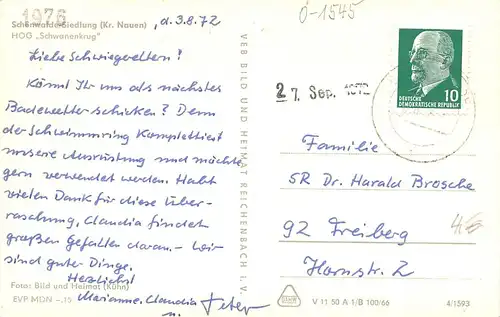 1976
Schönwalde-Siedlung (Kr. Nauen)
HOG „Schwanenkrug"
, d. 3.8.72
Liebe Schwiegereltern!
Könnt Ihr uns als nächstes
Badewetter schicken? Denn
der Schwimmring komplettiert
unsere Ausrüstung und möchte
gern verwendet werden. Habt
vielen Dank für diese Über-
raschung, Claudia findet
großen Gefallen daran. – Wir
sind guter Dinge.
Herzlichst
Marianne, Claudia
u. Peter
Foto: Bild und Heimat (Kühn)
EVP MDN –.15
VEB BILD UND HEIMAT REICHENBACH I. V.
Ö-1545
27. Sep. 1972
DEUTSCHE
DEMOKRATISCHE REPUBLIK
10
Familie
SR Dr. Harald Brosche
92 Freiberg
Hornstr. 2
V 11 50 A 1/B 100/66
4/1593